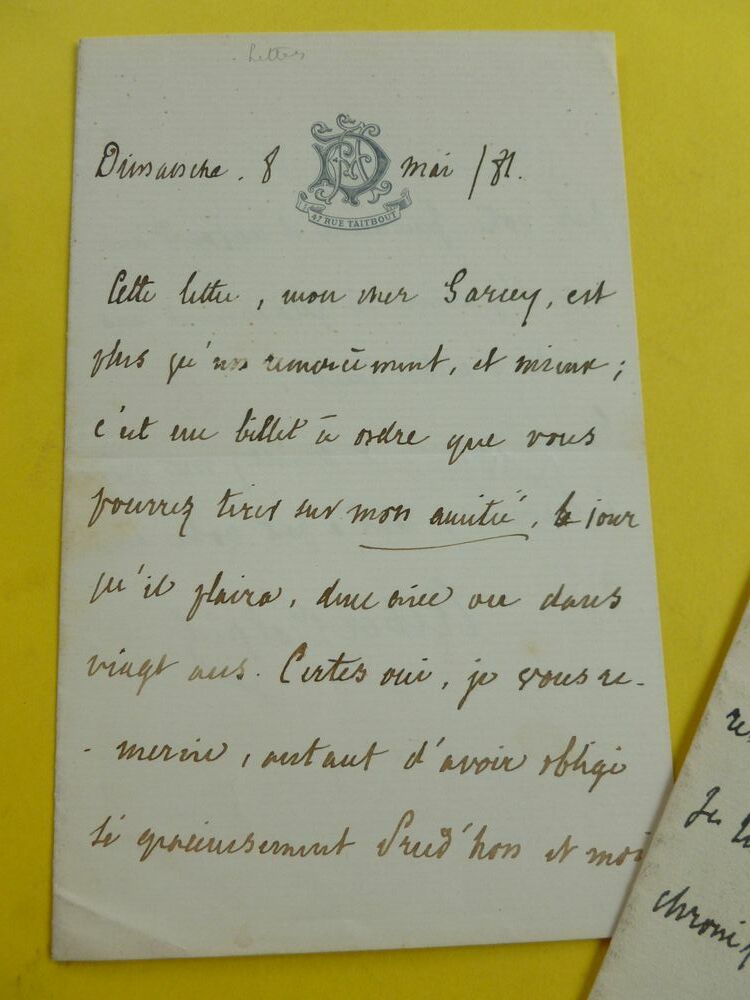 Lettres
Dimanche. 8 mai /81.
47 RUE TAITBOUT
Cette lettre, mon cher Sarcey, est
plus qu'un remerciement, et mieux ;
c'est un billet à ordre que vous
pourrez tirer sur mon amitié, le jour
qu'il plaira, demain ou dans
vingt ans. Certes oui, je vous re-
- mercie, autant d'avoir obligé
si gracieusement Prud'hon et moi
re
Je
chroni